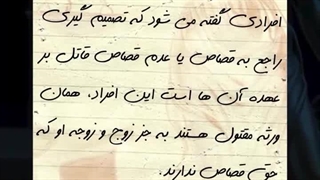 افرادی گفته می شود که تصمیم گیری
راجع به قصاص یا عدم قصاص قاتل بر
عهده آن ها است این افراد، همان
ورثه مقتول هستند به جز زوج و زوجه او که
حق قصاص ندارند.